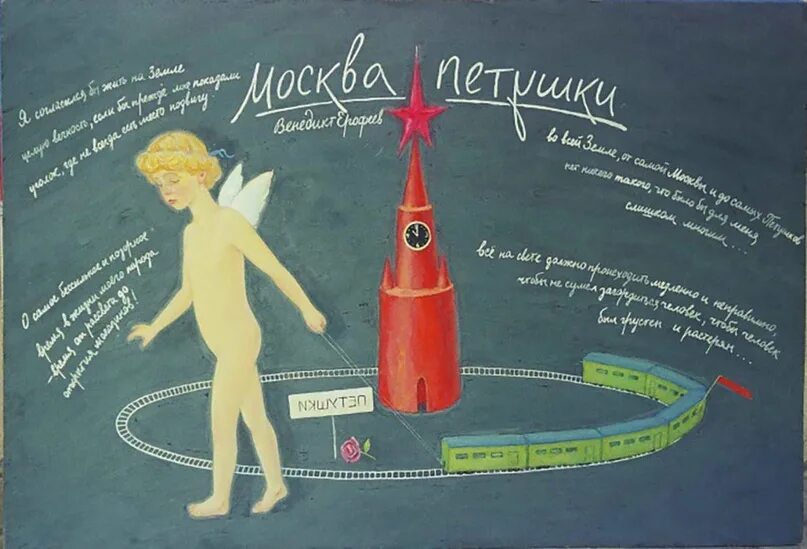 Москва Петушки
Венедикт Ерофеев
Я согласился бы жить на Земле
целую вечность, если бы прежде мне показали
уголок, где не всегда есть место подвигу.
во всей Земле, от самой Москвы и до самых Петушков
нет ничего такого, что было бы для меня
слишком многим...
О самое бессильное и позорное
время в жизни моего народа
- время от рассвета до
открытия магазинов!
всё на свете должно происходить медленно и неправильно,
чтобы не сумел загордиться человек, чтобы человек
был грустен и растерян...
ПЕТУШКИ